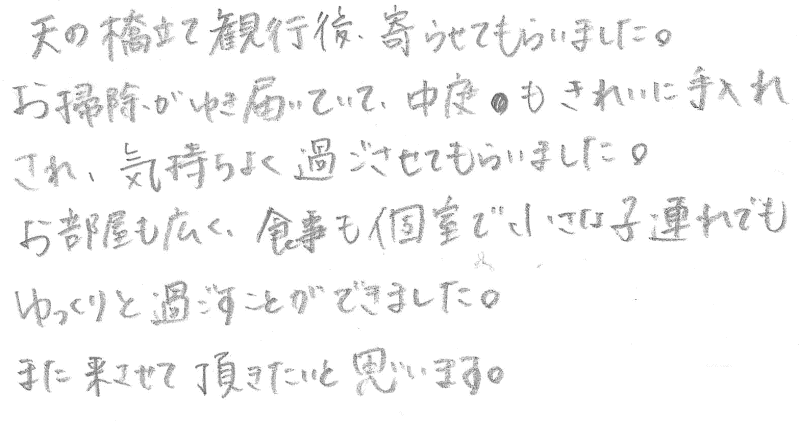 天の橋立て観行後、寄らせてもらいました。
お掃除がゆき届いていて、中庭もきれいに手入れ
され、気持ちよく過ごさせてもらいました。
お部屋も広く、食事も個室で小さな子連れでも
ゆっくりと過ごすことができました。
また来させて頂きたいと思います。